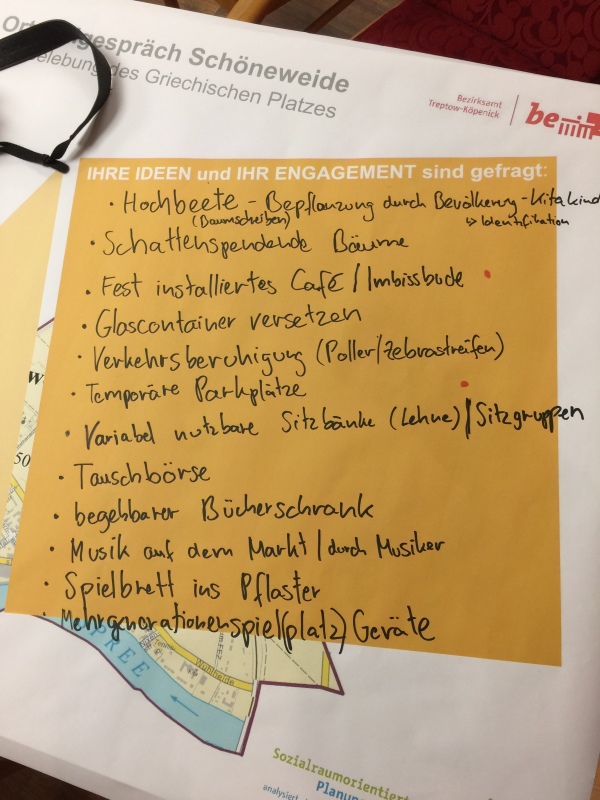 gespräch Schöneweide
elebung des Griechischen Platzes
Bezirksamt
Treptow-Köpenick
be
IHRE IDEEN und IHR ENGAGEMENT sind gefragt:
• Hochbeete - Bepflanzung durch Bevölkerung - Kitakind
(Baumscheiben) ↳ Identifikation
• Schattenspendende Bäume
• Fest installiertes Café / Imbissbude
• Glascontainer versetzen
• Verkehrsberuhigung (Poller/Zebrastreifen)
• Temporäre Parkplätze
• Variabel nutzbare Sitzbänke (Lehne) / Sitzgruppen
• Tauschbörse
• begehbarer Bücherschrank
• Musik auf dem Markt / durch Musiker
• Spielbrett ins Pflaster
• Mehrgenerationenspiel(platz) Geräte
W
50
SPREE
Wuhlheide
Sozialraumorientiert
Planu
analysiert